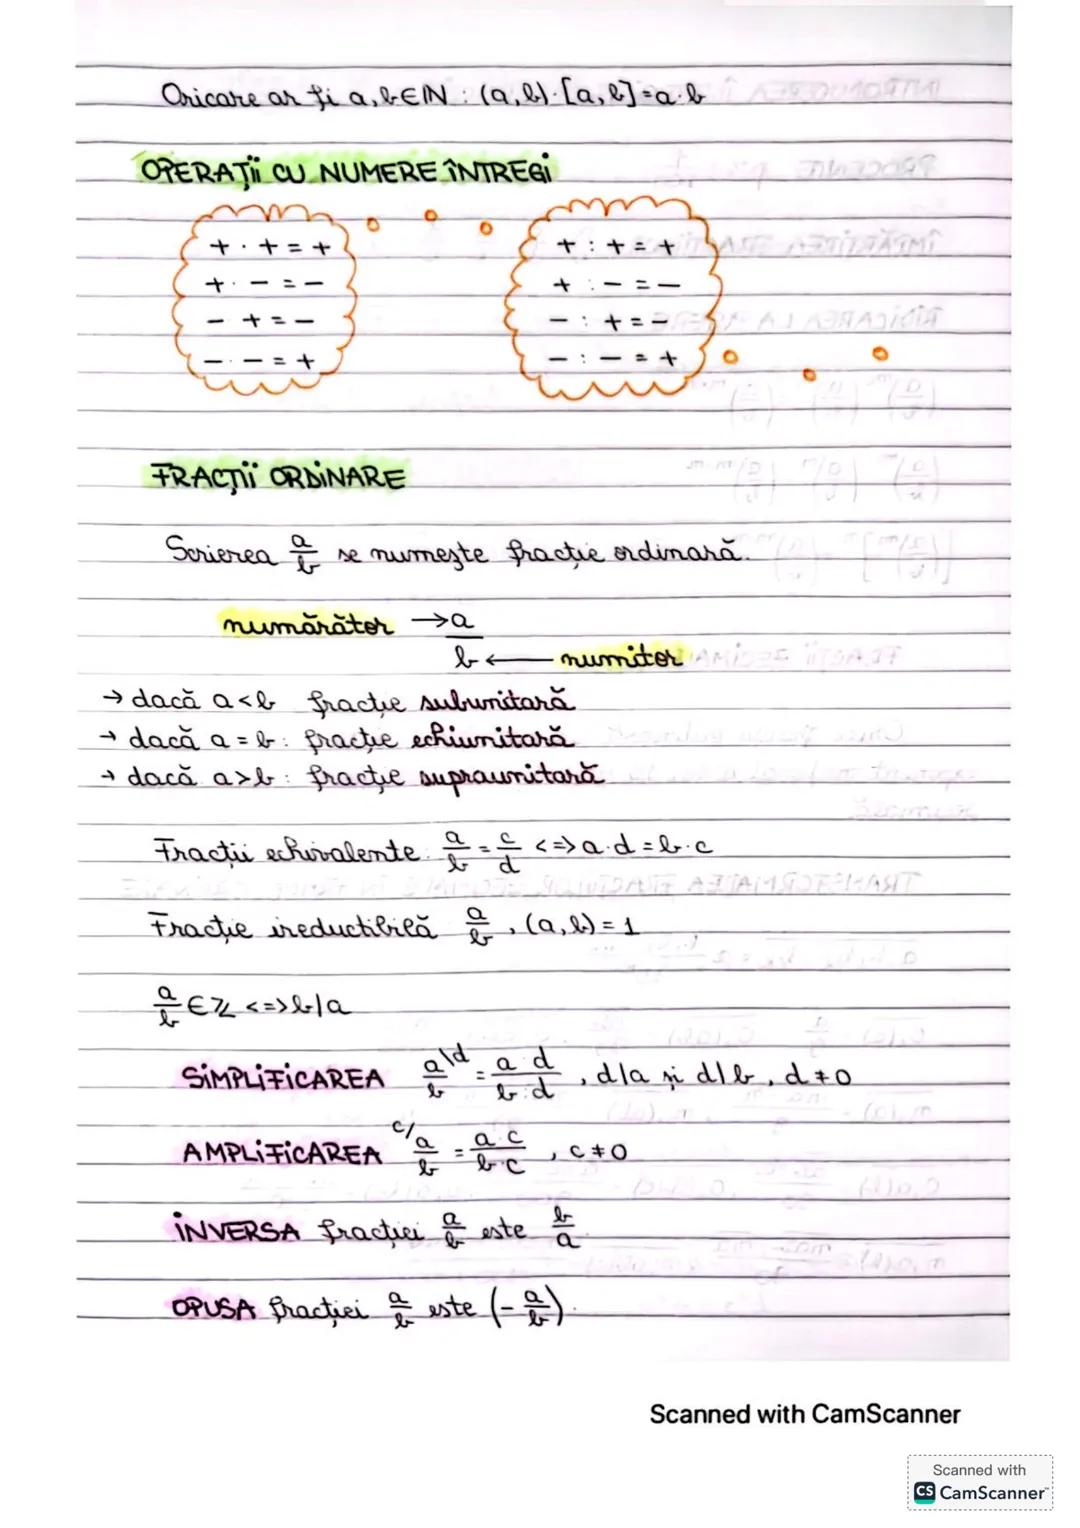 Oricare ar fi a, b∈ℕ : (a, b)·[a, b]=a·b
OPERAȚII CU NUMERE ÎNTREGI
+ · + = +
+ · − = −
− + = −
− · − = +
+ : + = +
+ : − = −
− : + = −
− : − = +
FRACȚII ORDINARE
Scrierea a/b se numește fracție ordinară.
numărător → a
b ← numitor
→ dacă a<b fracție subunitară
→ dacă a = b : fracție echiunitară
→ dacă a>b : fracție supraunitară
Fracții echivalente : a/b = c/d <=> a·d = b·c
Fracție ireductibilă a/b , (a, b) = 1
a/b ∈ ℤ <=> b/a
SIMPLIFICAREA a/b \d = a d/b:d , d/a și d/b , d ≠ 0
AMPLIFICAREA c/ a/b = a·c/b·c , c ≠ 0
INVERSA fracției a/b este b/a
OPUSA fracției a/b este (− a/b).
Scanned with CamScanner
Scanned with
CS CamScanner™